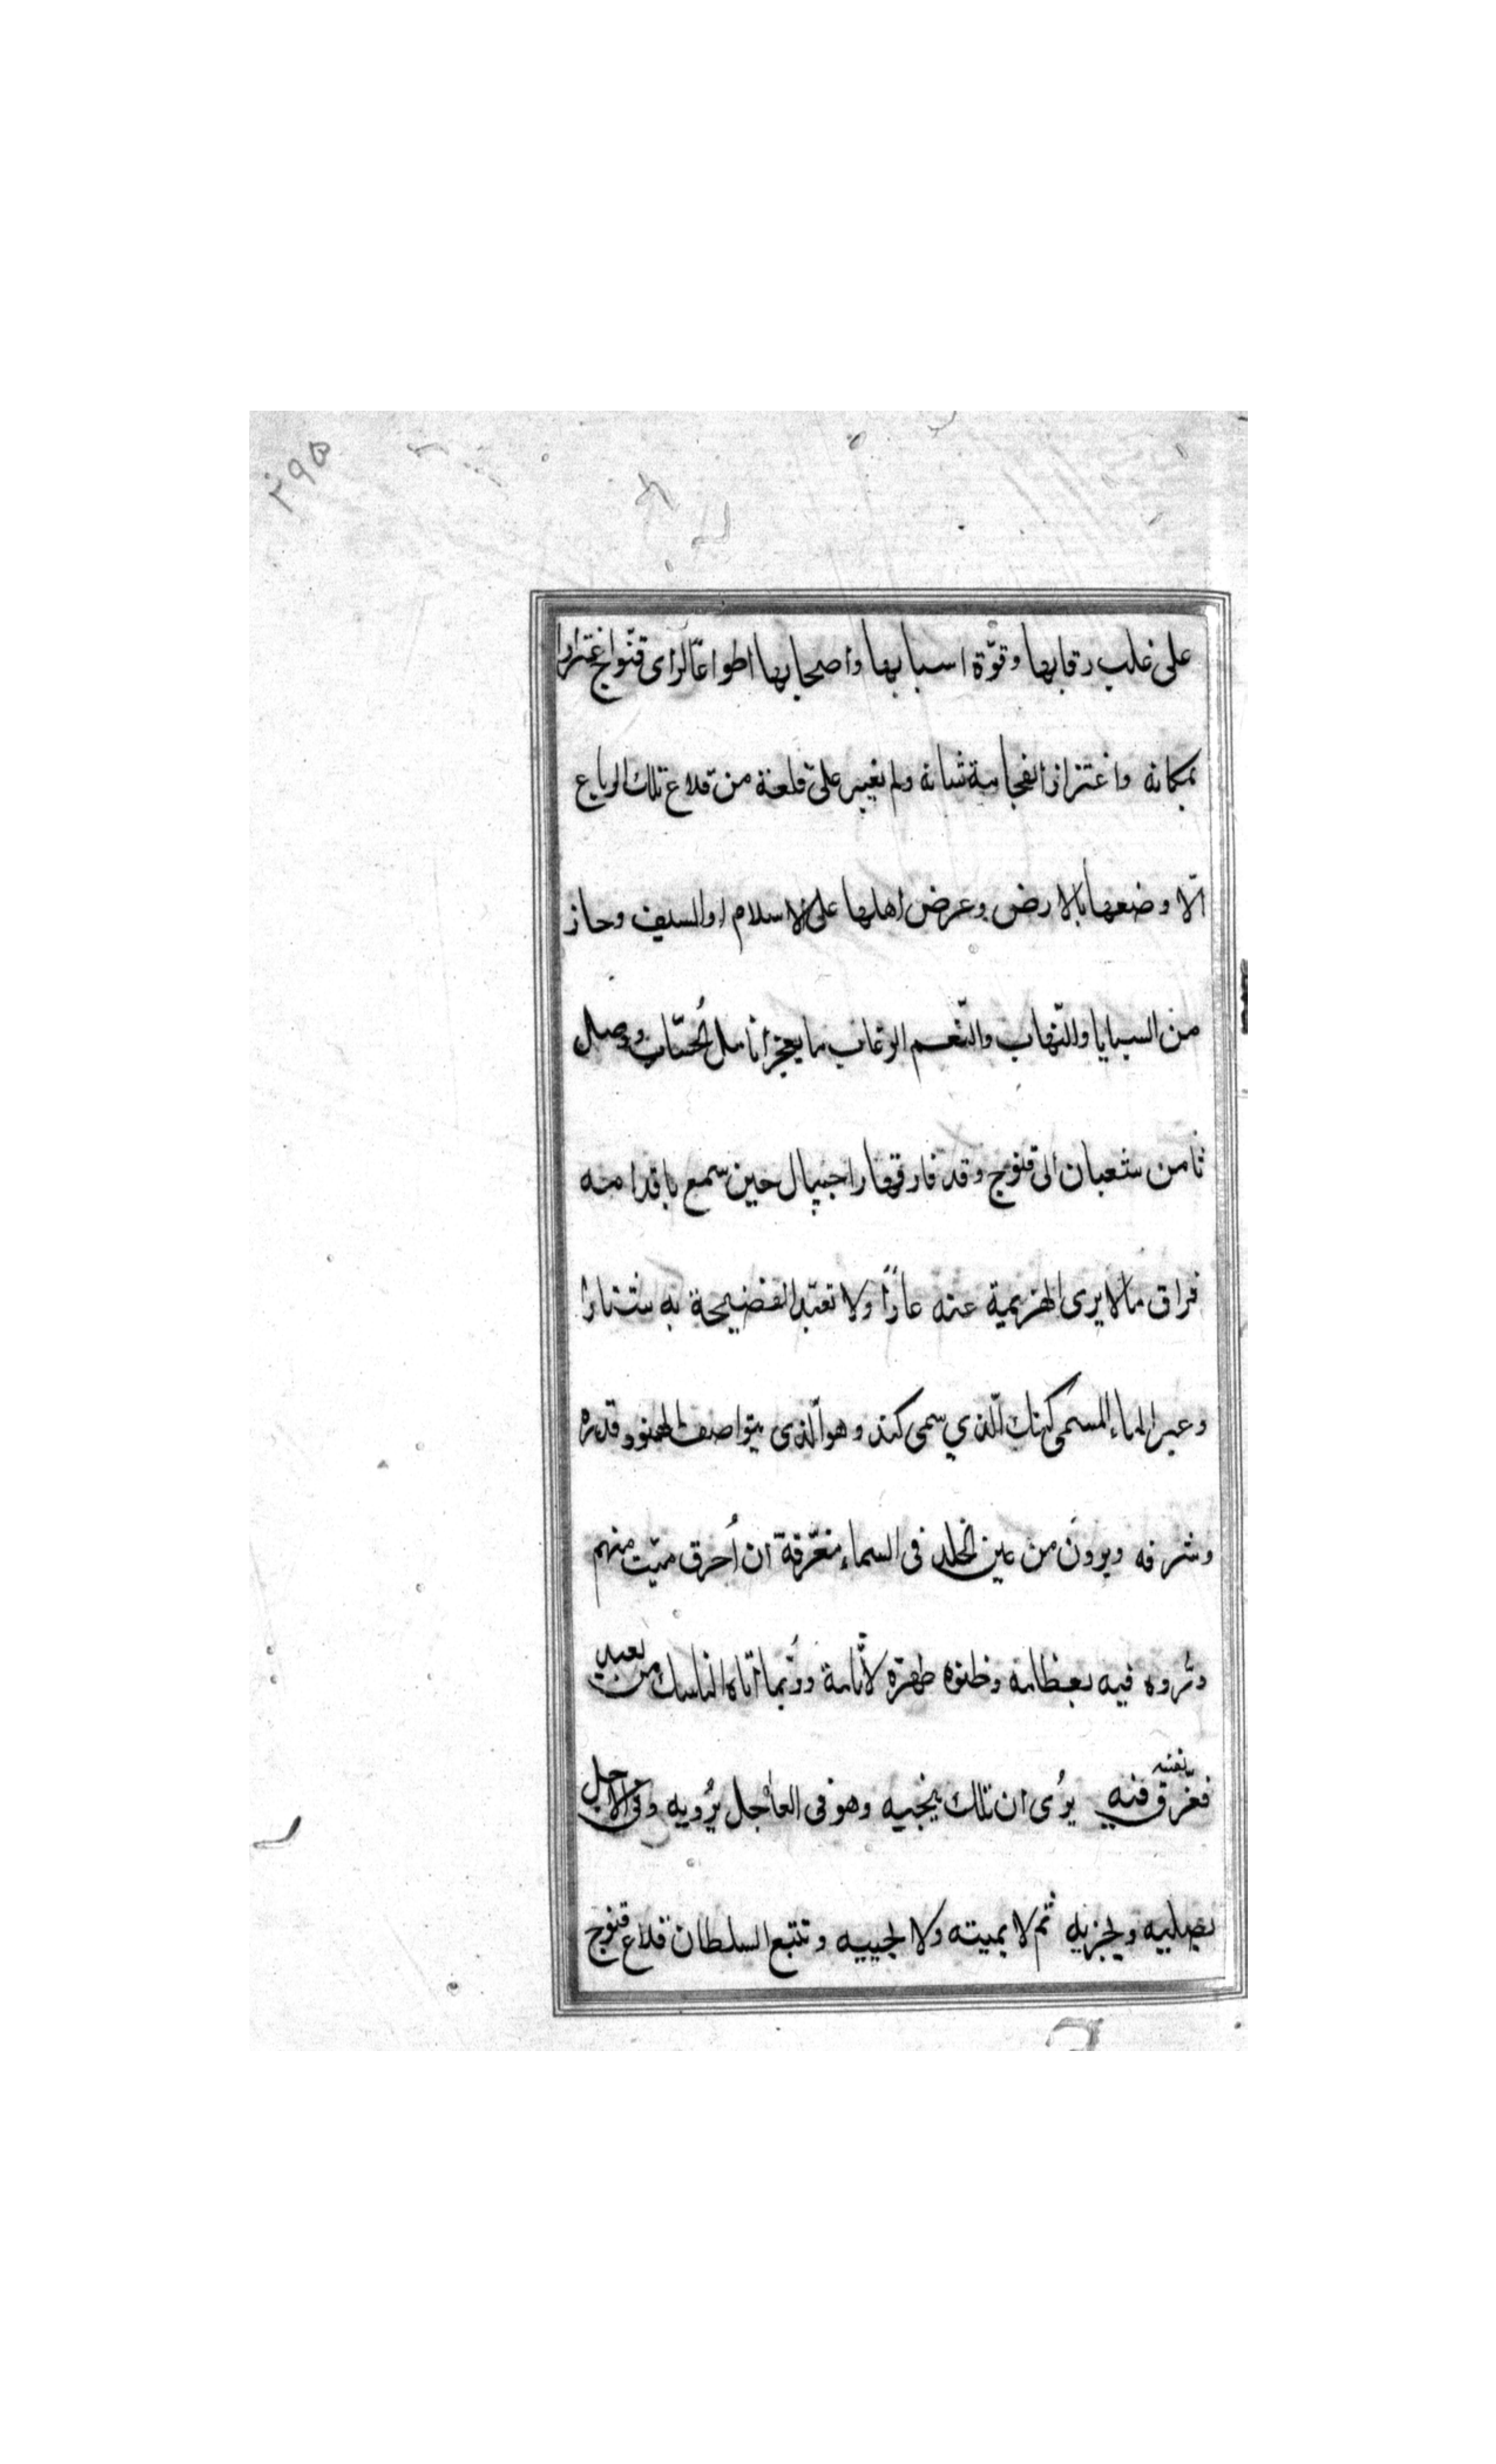 ۲۹۵
على غلب رقابها وقوّة اسبابها واصحابها اطواعًا لراى قنّوج اغترارا
بمكانه واغتزازا لفخامة شانه ولم نغيبر على قلعة من قلاع تلك الرباع
الّا وضعها بالارض وعرض اهلها على الاسلام او السيف وحاز
من السبايا والنّهاب والنّعم الرغاب ما يعجز انامل الحُسّاب ووصل
ثامن شعبان الى قنوج وقد فارقها راجيپال حين سمع باقدامه
فراق ما لا يرى الهزيمة عنه عارًا ولا تعتدّ الفضيحة به شنارا
وعبر الماء المسمى كنك الّذي سمى كند وهو الّذى يتواصف الهنود قدره
وشرفه ويرون من عين الخلد فى السماء مغترفة ان اُحرق ميّت منهم
وثروه فيه بعظامه وظنوه طهرة لآثامه ورُبما اتاه الناسك من بعيد
فغرّق نفسه فيه يرُى ان تلك ينجيه وهو فى العاجل يُرويه وفى الآجل
يصليه ويجزيه ثم لا يميته ولا يحييه وتتبع السلطان قلاع قنوج